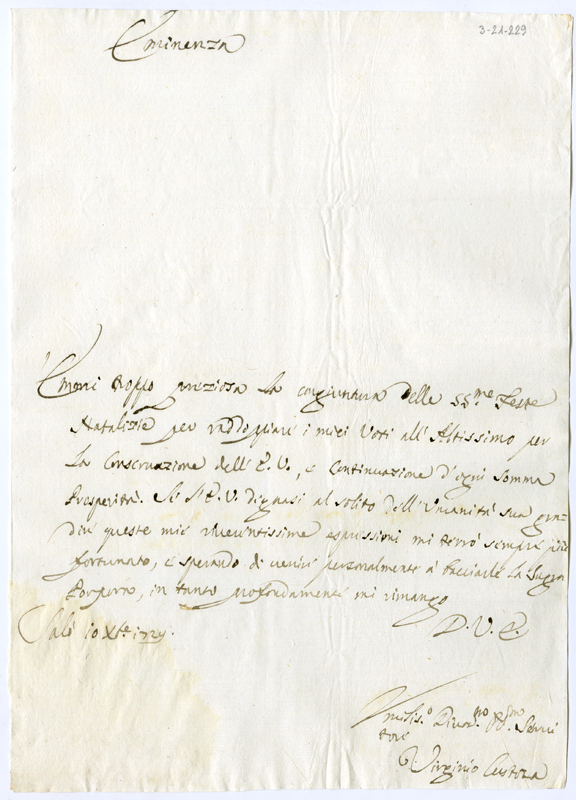 3-21-229
Eminenza
Emmi troppo preziosa la congiuntura delle SS.me Feste
Natalizie per raddoppiare i miei Voti all'Altissimo per
la Conservazione dell'E. V., e Continuazione d'ogni somma
Prosperità. Se l'E. V. degnasi al solito dell'Umanità sua gra-
dir queste mie riverentissime espressioni mi terrò sempre più
fortunato, e sperando di venir personalmente à bacciarle la Sagra
Porpora, in tanto profondamente mi rimango
D. V. E.
Salò 10 Xbre 1729.
Umilis.o Divot.mo Servi
tore
Virginio Custoza